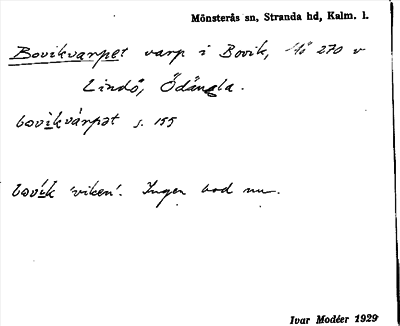 Mönsterås sn, Stranda hd, Kalm. l.
Bovikvarpet varp i Bovik, 270 v
Lindö, Ödängla.
bovikvárpət s. 155
bovík 'viken'. Ingen bod nu.
Ivar Modéer 1929